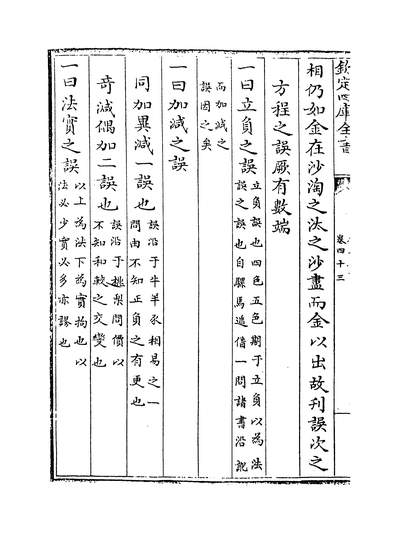 欽定四庫全書
卷四十三
相仍如金在沙淘之汰之沙盡而金以出故刋誤次之
方程之誤厥有數端
一曰立負之誤
立負誤也四色五色期于立負以為法
誤之誤也自騾馬逓借一問諸書沿訛
而加減之
誤因之矣
一曰加減之誤
同加異減一誤也
誤沿于牛羊豕相易之一
問由不知正負之有更也
奇減偶加二誤也
誤沿于桃梨問價以
不知和較之交變也
一曰法實之誤
以上為法下為實拘也以
法必少實必多亦謬也